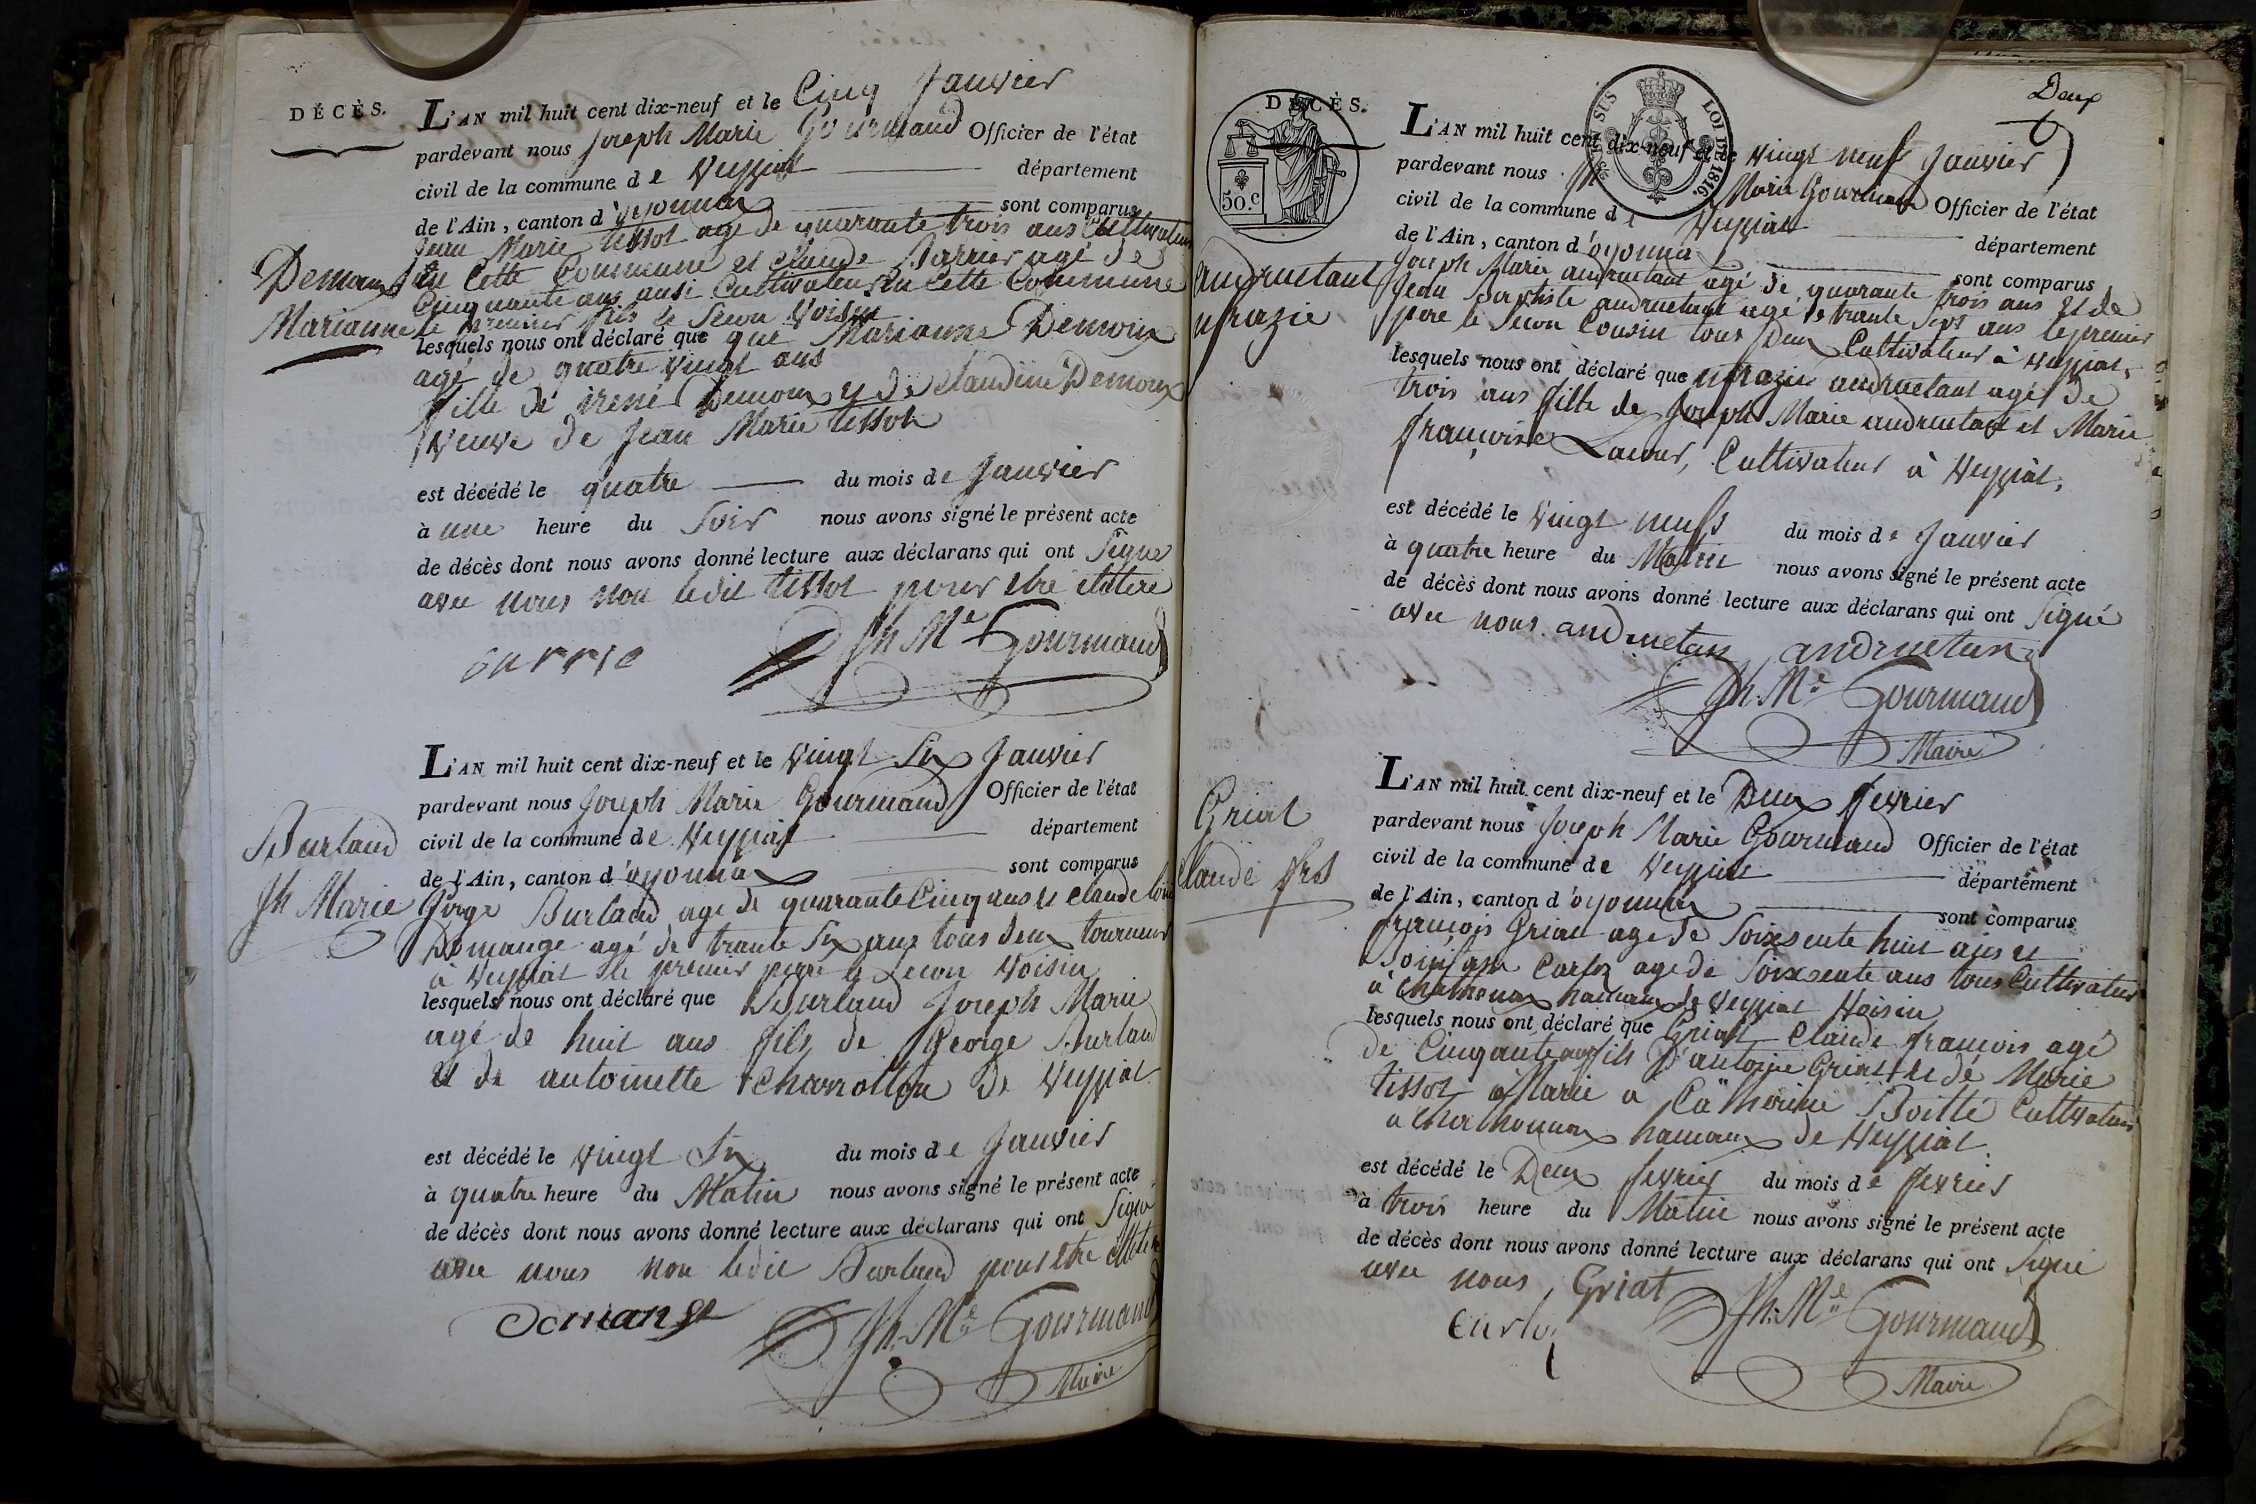 DÉCÈS.
L'AN mil huit cent dix-neuf et le Cinq Janvier
pardevant nous Joseph Marie Gourmand Officier de l'état
civil de la commune de Veyziat département
de l'Ain, canton d'oyonnax sont comparus
Jean Marie tissot age de quarante trois ans Cultivateur
en Cette Commune et claude Barrier agé de
Cinquante ans ausi Cultivateur en Cette Commune
le premier fils le Secon Voisin
Demoux
Marianne
lesquels nous ont déclaré que que Marianne Demoux
agé de quatre Vingt ans
fille de irené Demoux et de Claudine Demoux
Veuve de Jean Marie tissot
est décédé le quatre du mois de Janvier
à une heure du Soir nous avons signé le présent acte
de décès dont nous avons donné lecture aux déclarans qui ont Signé
avec nous non ledit tissot pour etre iliteré
Jh Me Gourmand
L'AN mil huit cent dix-neuf et le Vingt Six Janvier
pardevant nous Joseph Marie Gourmand Officier de l'état
civil de la commune de Veyziat département
de l'Ain, canton d'oyonnax sont comparus
Burtaud
Jh Marie
Gorge Burtaud age de quarante Cinq ans et Claude
Domange agé de trante Six ans tous deux tourneur
à Veyziat le premier pere le Secon Voisin
lesquels nous ont déclaré que Burtaud Joseph Marie
agé de huit ans fils de George Burtaud
et de antoinette de Veyziat
est décédé le Vingt Six du mois de Janvier
à quatre heure du Matin nous avons signé le présent acte
de décès dont nous avons donné lecture aux déclarans qui ont Signé
avec nous non ledit Burtaud pour etre
Domange
Jh. Me Gourmand
Maire
Deux
DÉCÈS.
SUS
LOI DE 1816.
50.c
L'AN mil huit cent dix-neuf et le Vingt neuf Janvier
pardevant nous Marie Gourmand Officier de l'état
civil de la commune d Veyziat département
de l'Ain, canton d'oyonnax sont comparus
andruetant
ufrazie
Joseph Marie andruetant agé de quarante trois ans et de
Jean Baptiste andruetant agé de trante Sept ans le premier
pere le Secon Cousin tous Deux Cultivateur à Veyziat,
lesquels nous ont déclaré que ufrazie andruetant agé de
trois ans fille de Joseph Marie andruetant et Marie
françoise Lacour, Cultivateur à Veyziat,
est décédé le Vingt neuf du mois de Janvier
à quatre heure du Matin nous avons signé le présent acte
de décès dont nous avons donné lecture aux déclarans qui ont Signé
avec nous. andruetan andruetan
Jh. Me Gourmand
Maire
L'AN mil huit cent dix-neuf et le Deux fevrier
pardevant nous Joseph Marie Gourmand Officier de l'état
civil de la commune de Veyziat département
de l'Ain, canton d'oyonnax sont comparus
Griat
Claude frs
françois Griat age de Soixsente huit ans et
Carloz age de Soixsente ans tous Cultivateur
à Chathonax hamaux de Veyziat Voisin
lesquels nous ont déclaré que Griat Claude francois agé
de Cinqante ans fils D'antoine Griat et de Marie
tissot Marie a Catherine Boitté Cultivateur
a Chathonnax hamaux de Veyziat.
est décédé le Deux fevrier du mois de fevrier
à trois heure du Matin nous avons signé le présent acte
de décès dont nous avons donné lecture aux déclarans qui ont Signé
avec nous Griat
Carloz
Jh. Me Gourmand
Maire